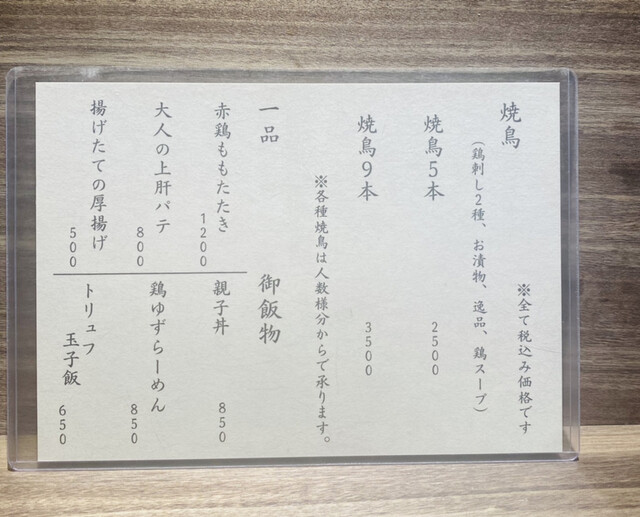 焼鳥
※全て税込み価格です
(鶏刺し2種、お漬物、逸品、鶏スープ)
焼鳥5本
2500
焼鳥9本
3500
※各種焼鳥は人数様分からで承ります。
一品
赤鶏ももたたき
1200
大人の上肝パテ
800
揚げたての厚揚げ
500
御飯物
親子丼
850
鶏ゆずらーめん
850
トリュフ
玉子飯
650